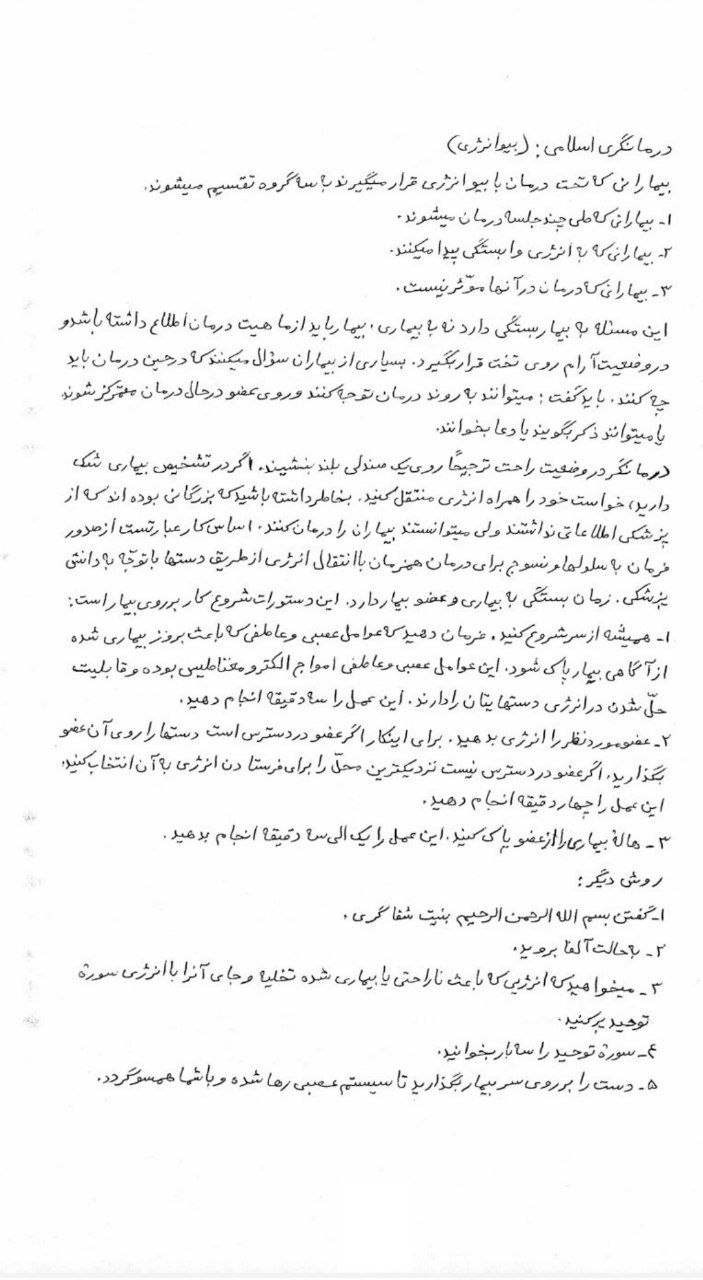 درمانگری اسلامی: (بیوانرژی)
بیمارانی که تحت درمان با بیوانرژی قرار میگیرند به سه گروه تقسیم میشوند.
۱- بیمارانی که طی چند جلسه درمان میشوند.
۲- بیمارانی که به انرژی وابستگی پیدا میکنند.
۳- بیمارانی که درمان در آنها موّثر نیست.
این مسئله به بیمار بستگی دارد نه با بیماری. بیمار باید از ماهیت درمان اطلاع داشته باشد و
در وضعیت آرام روی تخت قرار بگیرد. بسیاری از بیماران سؤال میکنند که در حین درمان باید
چه کنند. باید گفت: میتوانند به روند درمان توجه کنند و روی عضو در حال درمان متمرکز شوند
یا میتوانند ذکر بگویند یا دعا بخوانند.
درمانگر در وضعیت راحت ترجیحًا روی یک صندلی بلند بنشیند. اگر در تشخیص بیماری شک
دارید، خواست خود را همراه انرژی منتقل کنید. بخاطر داشته باشید که بزرگانی بوده اند که از
پزشکی اطلاعاتی نداشتند ولی میتوانستند بیماران را درمان کنند. اساس کار عبارتست از صدور
فرمان به سلولها و نسوج برای درمان همزمان با انتقال انرژی از طریق دستها با توجّه به دانش
پزشکی. زمان بستگی به بیماری و عضو بیمار دارد. این دستورات شروع کار بر روی بیمار است:
۱- همیشه از سر شروع کنید. فرمان دهید که عوامل عصبی و عاطفی که باعث بروز بیماری شده
از آگاهی بیمار پاک شود. این عوامل عصبی و عاطفی امواج الکترومغناطیس بوده و قابلیت
حلّ شدن در انرژی دستهایتان را دارند. این عمل را سه دقیقه انجام دهید.
۲- عضو مورد نظر را انرژی بدهید. برای اینکار اگر عضو در دسترس است دستها را روی آن عضو
بگذارید. اگر عضو در دسترس نیست نزدیکترین محلّ را برای فرستادن انرژی به آن انتخاب کنید.
این عمل را چهار دقیقه انجام دهید.
۳- هالهٔ بیماری را از عضو پاک کنید. این عمل را یک الی سه دقیقه انجام بدهید.
روش دیگر:
۱- گفتن بسم الله الرحمن الرحیم بنیت شفا گری.
۲- به حالت آلفا بروید.
۳- میخواهید که انرژیی که باعث ناراحتی یا بیماری شده تخلیه و جای آنرا با انرژی سورهٔ
توحید پر کنید.
۴- سورهٔ توحید را سه بار بخوانید.
۵- دست را بر روی سر بیمار بگذارید تا سیستم عصبی رها شده و با شما همسو گردد.